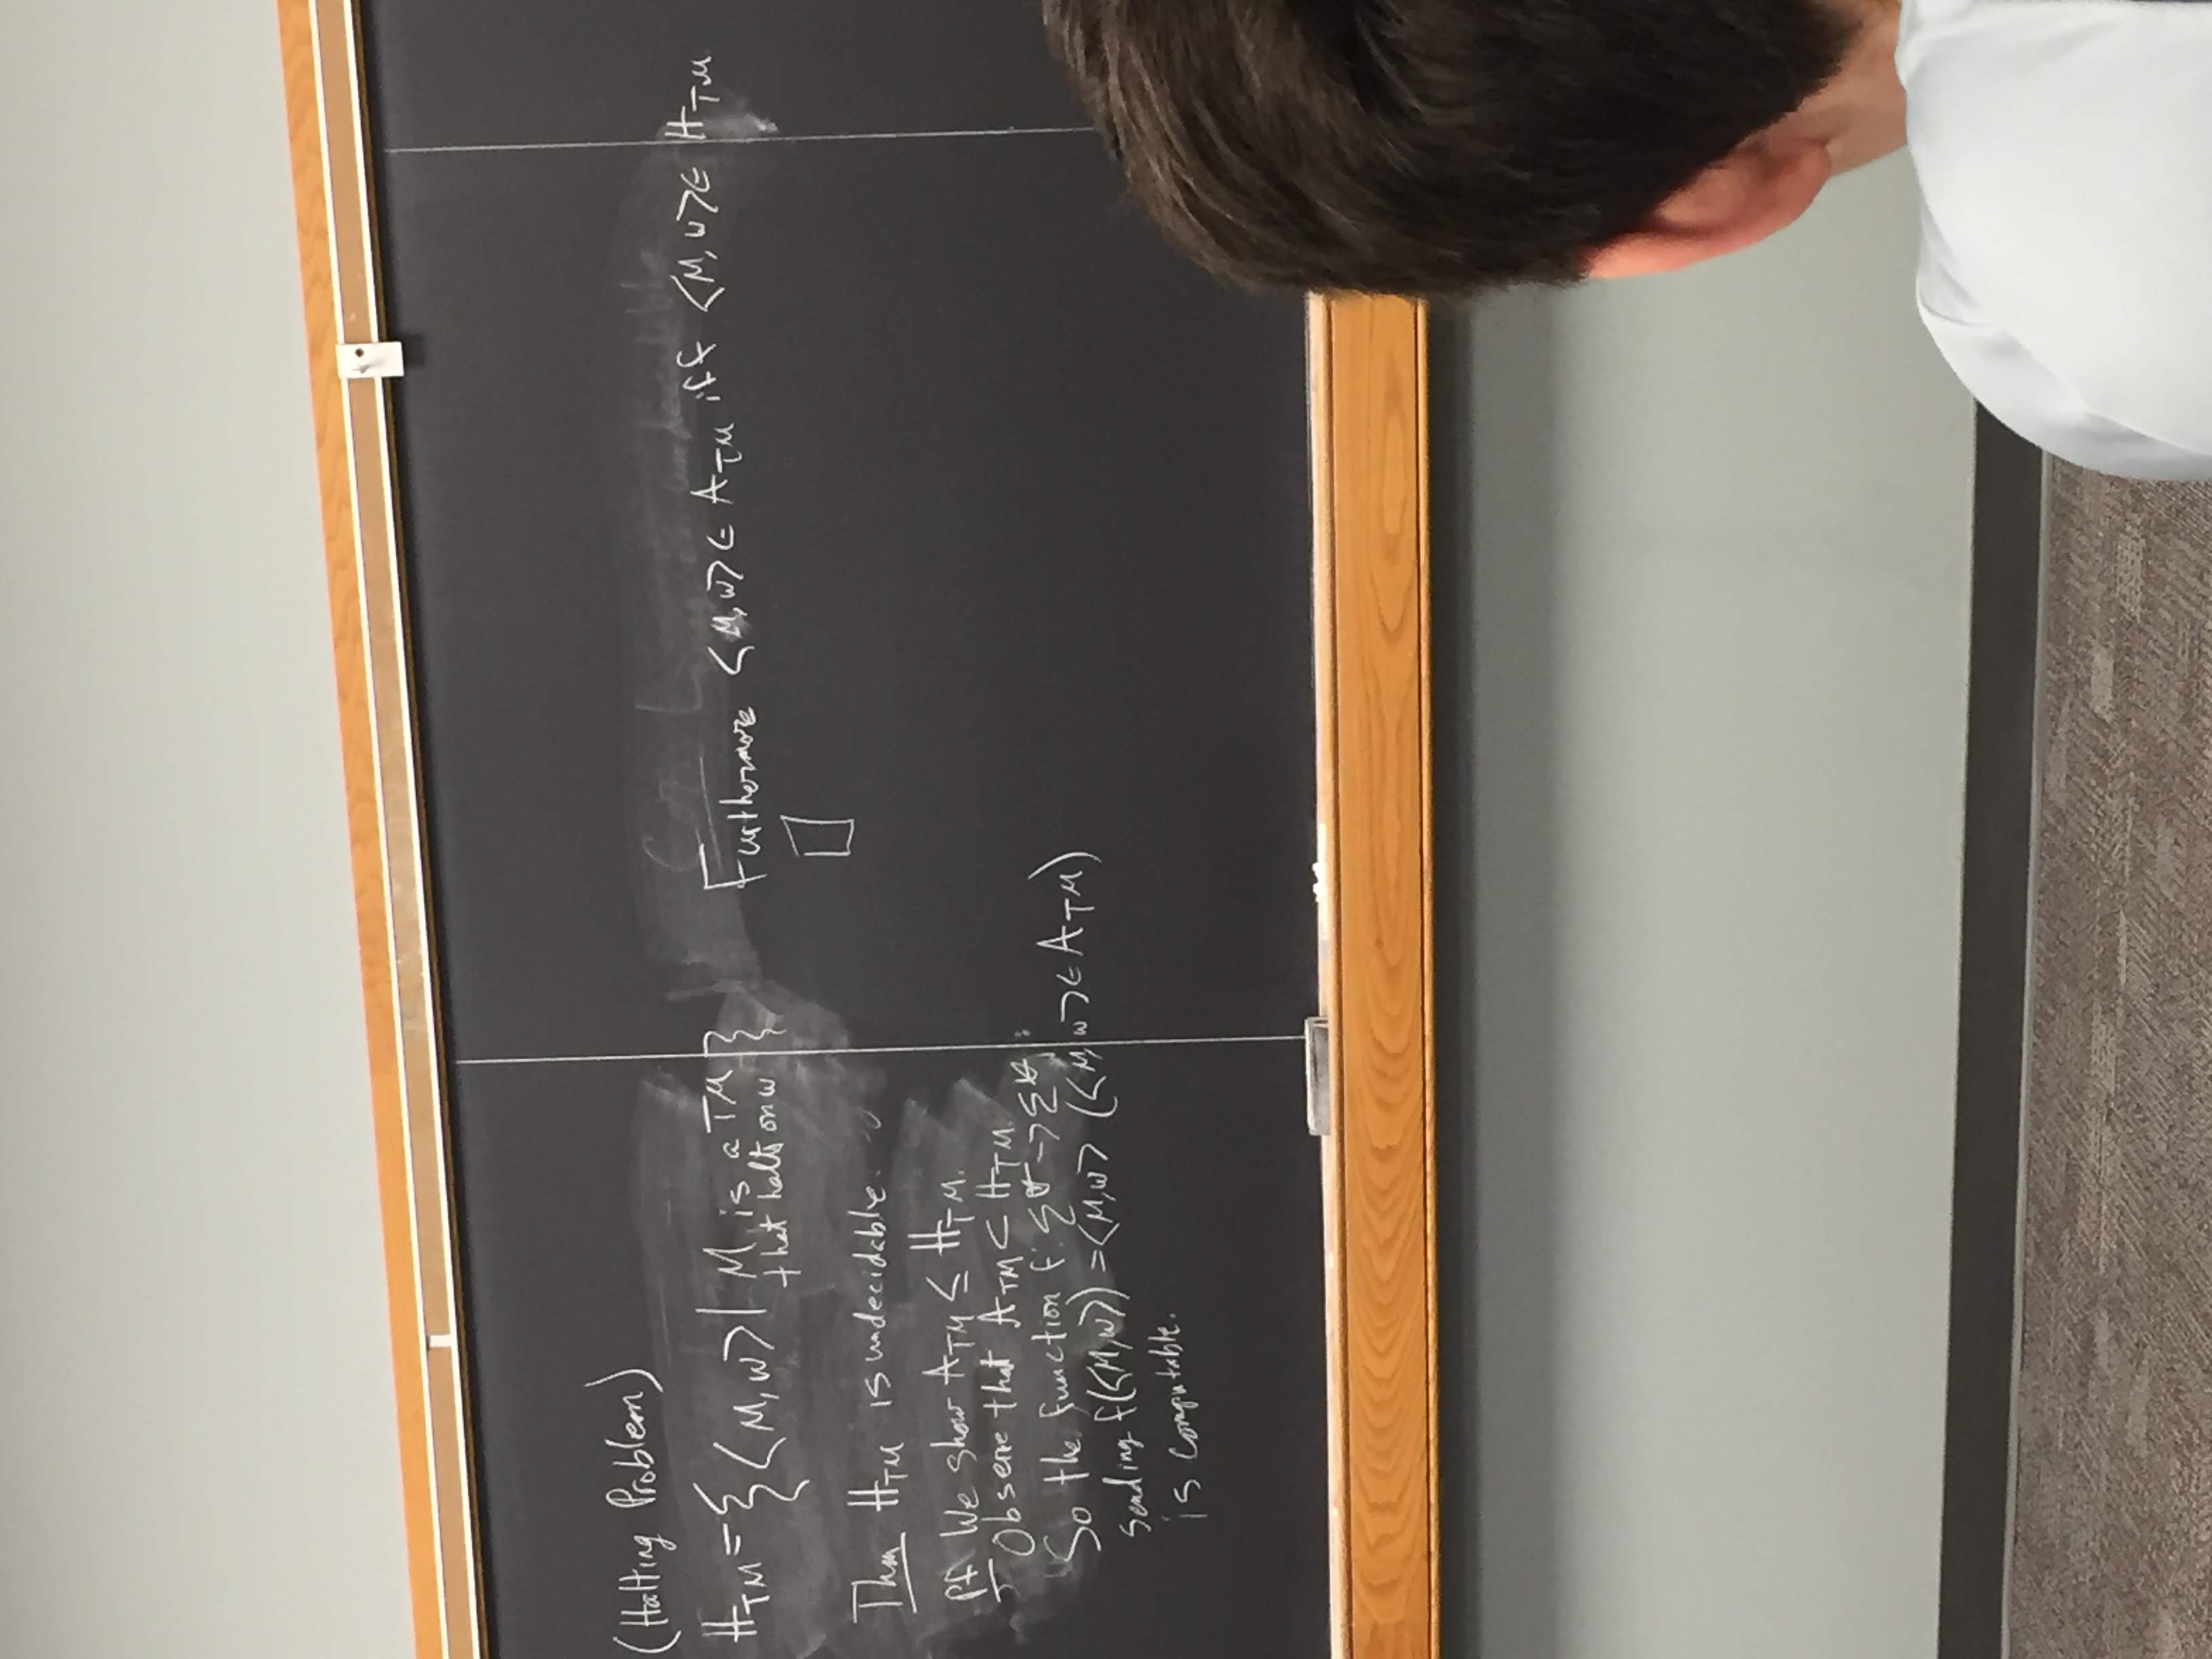 (Halting Problem)
H_TM = {⟨M, w⟩ | M is a TM
that halts on w}
Thm H_TM is undecidable.
Pf We show A_TM ≤ H_TM.
Observe that A_TM ⊂ H_TM.
So the function f: Σ* → Σ*
sending f(⟨M,w⟩) = ⟨M,w⟩ (⟨M,w⟩ ∈ A_TM)
is computable.
Furthermore ⟨M,w⟩ ∈ A_TM iff ⟨M,w⟩ ∈ H_TM
□